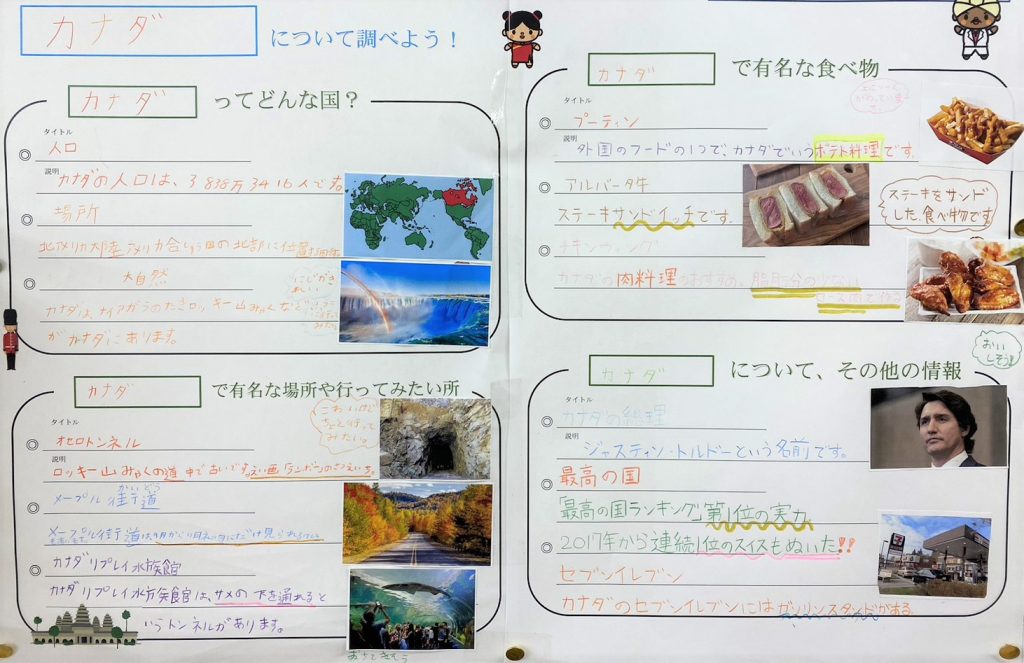 カナダ
について調べよう！
カナダ
ってどんな国？
タイトル
人口
説明
カナダの人口は、3838万3416人です。
場所
北アメリカ大陸 アメリカ合しゅう国の北部に位置
大自然
カナダは、ナイアガラのたきロッキー山みゃくなど
がカナダにあります。
カナダ
で有名な場所や行ってみたい所
タイトル
オセロトンネル
こわいけど
ちょっと行って
みたい。
説明
ロッキー山みゃくの道中で
かいどう
メープル街道
メープル街道は9月から
カナダリプレイ水族館
カナダリプレイ水族館は、サメの下を通れると
いうトンネルがあります。
カナダ
で有名な食べ物
タイトル
プーティン
説明
外国のフードの1つで、カナダでいうポテト料理です。
アルバータ牛
ステーキサンドイッチです。
ステーキをサンド
した食べ物です
チキンウィング
カナダの肉料理のおすすめ、脂肪分の少ない
おいしそう
カナダ
について、その他の情報
タイトル
カナダの総理
説明
ジャスティン・トルドーという名前です。
最高の国
「最高の国ランキング」第1位の実力
2017年から連続1位のスイスもぬいた!!
セブンイレブン
カナダのセブンイレブンにはガソリンスタンドがある。